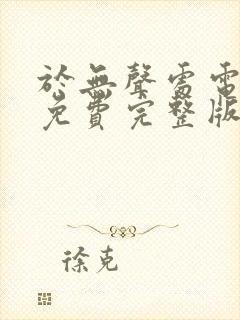 於無聲雷電
免費完整版
徐克